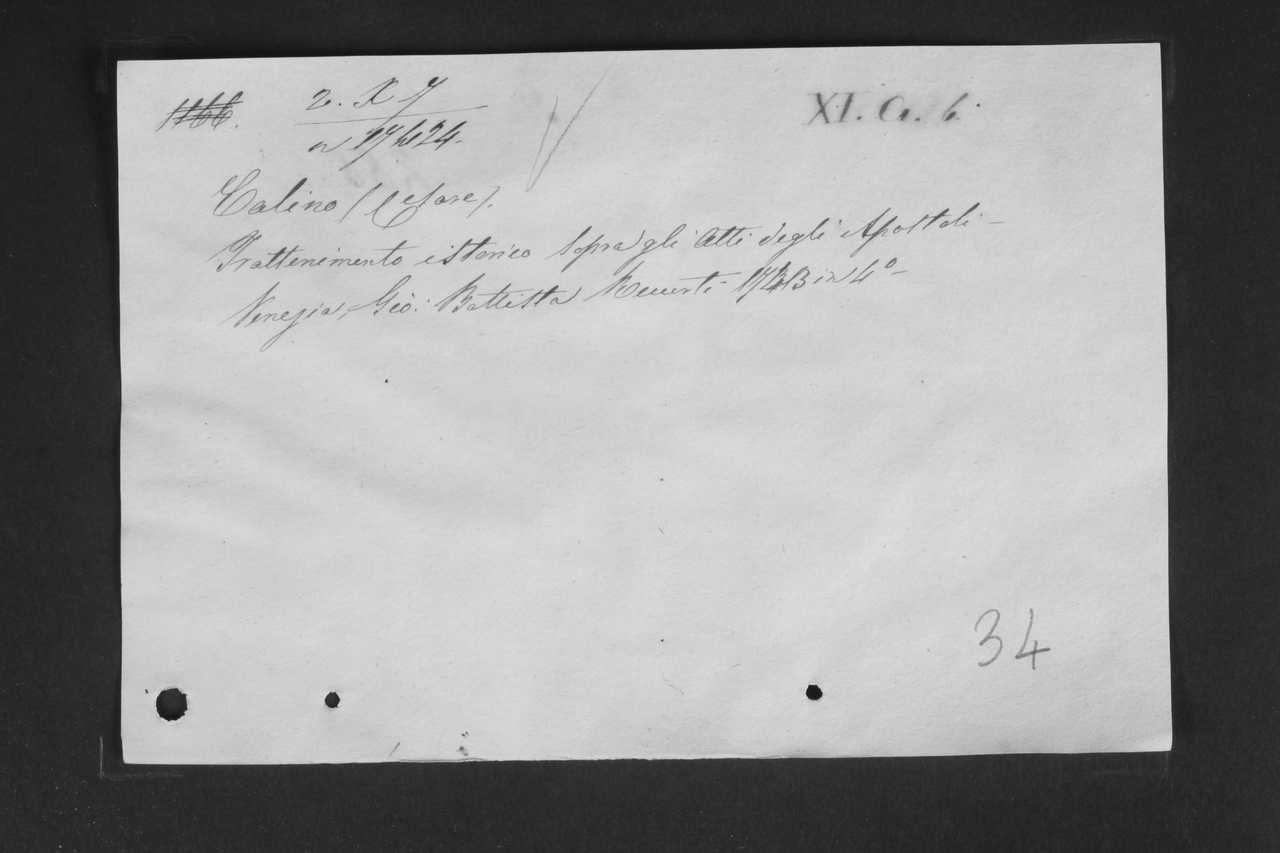 1166.
2. X 7
XI. G. 6.
n 17424.
Calino (Cesare).
Trattenimento istorico sopra gli Atti degli Apostoli -
Venezia, Gio: Battista Recurti - in 4º -
34